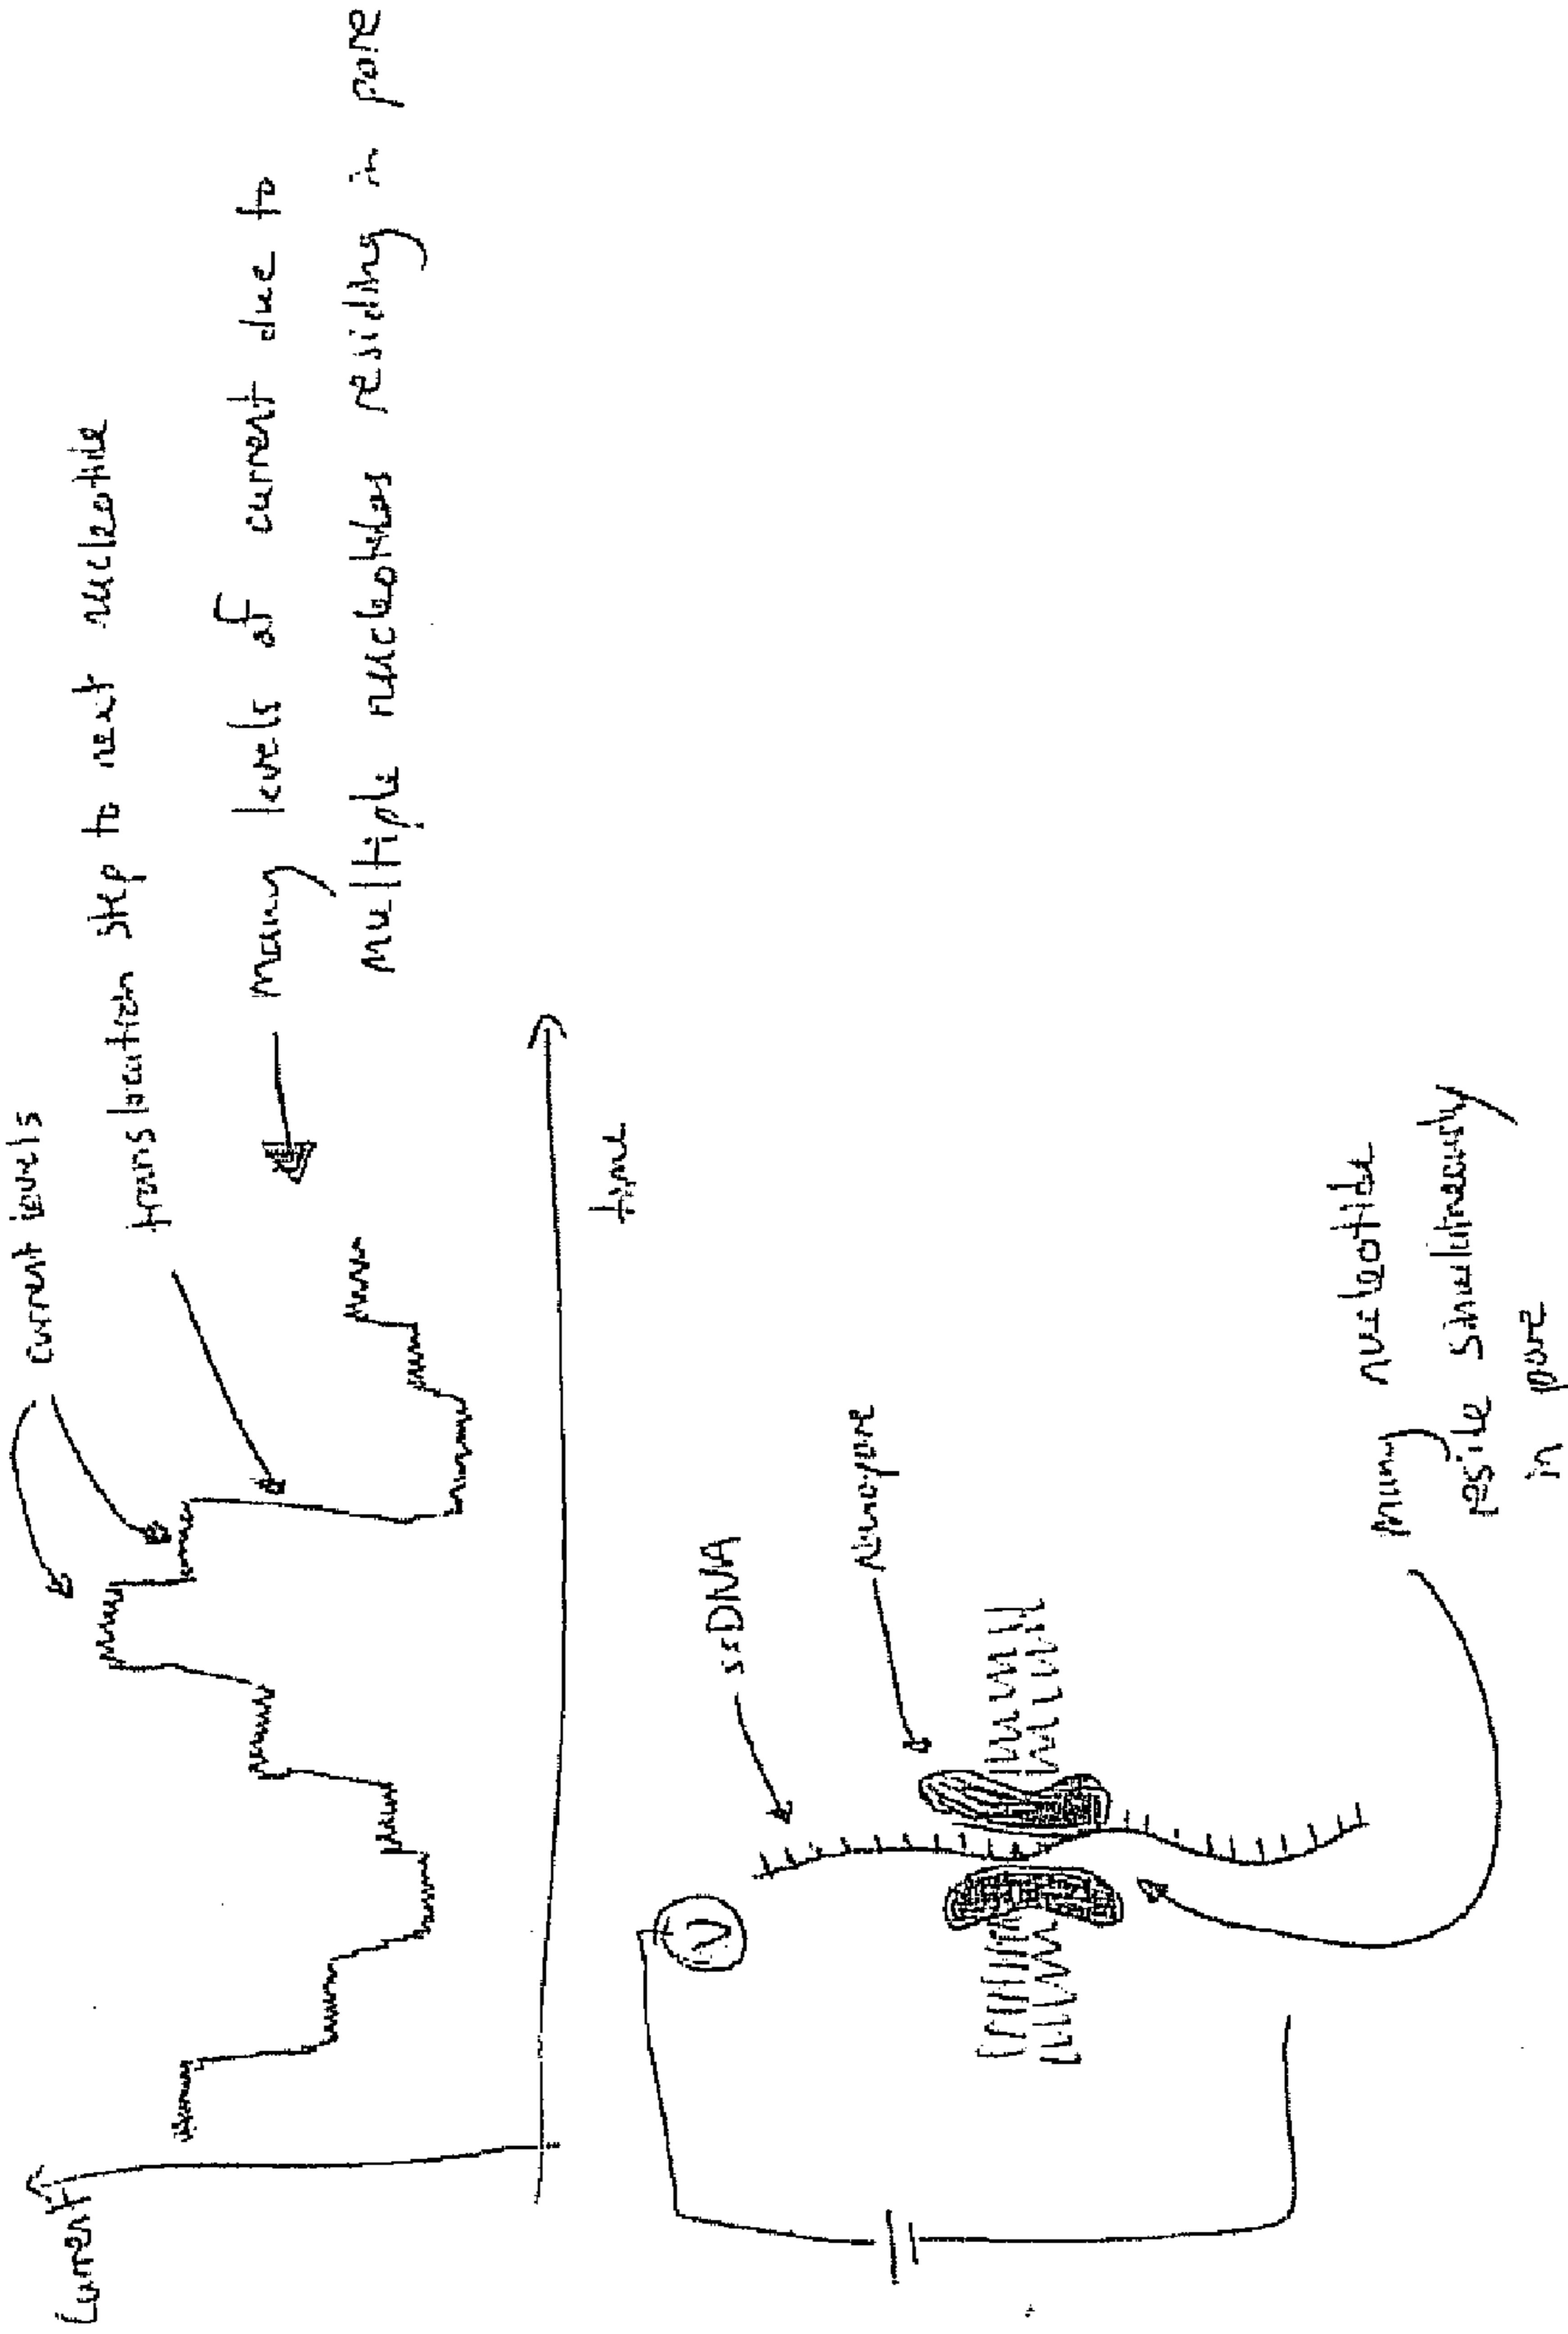 current levels
translocation step to next nucleotide
many levels of current due to
multiple nucleotides residing in pore
Current
time
ssDNA
Nanopore
V
many nucleotide
reside simulatneously
in pore